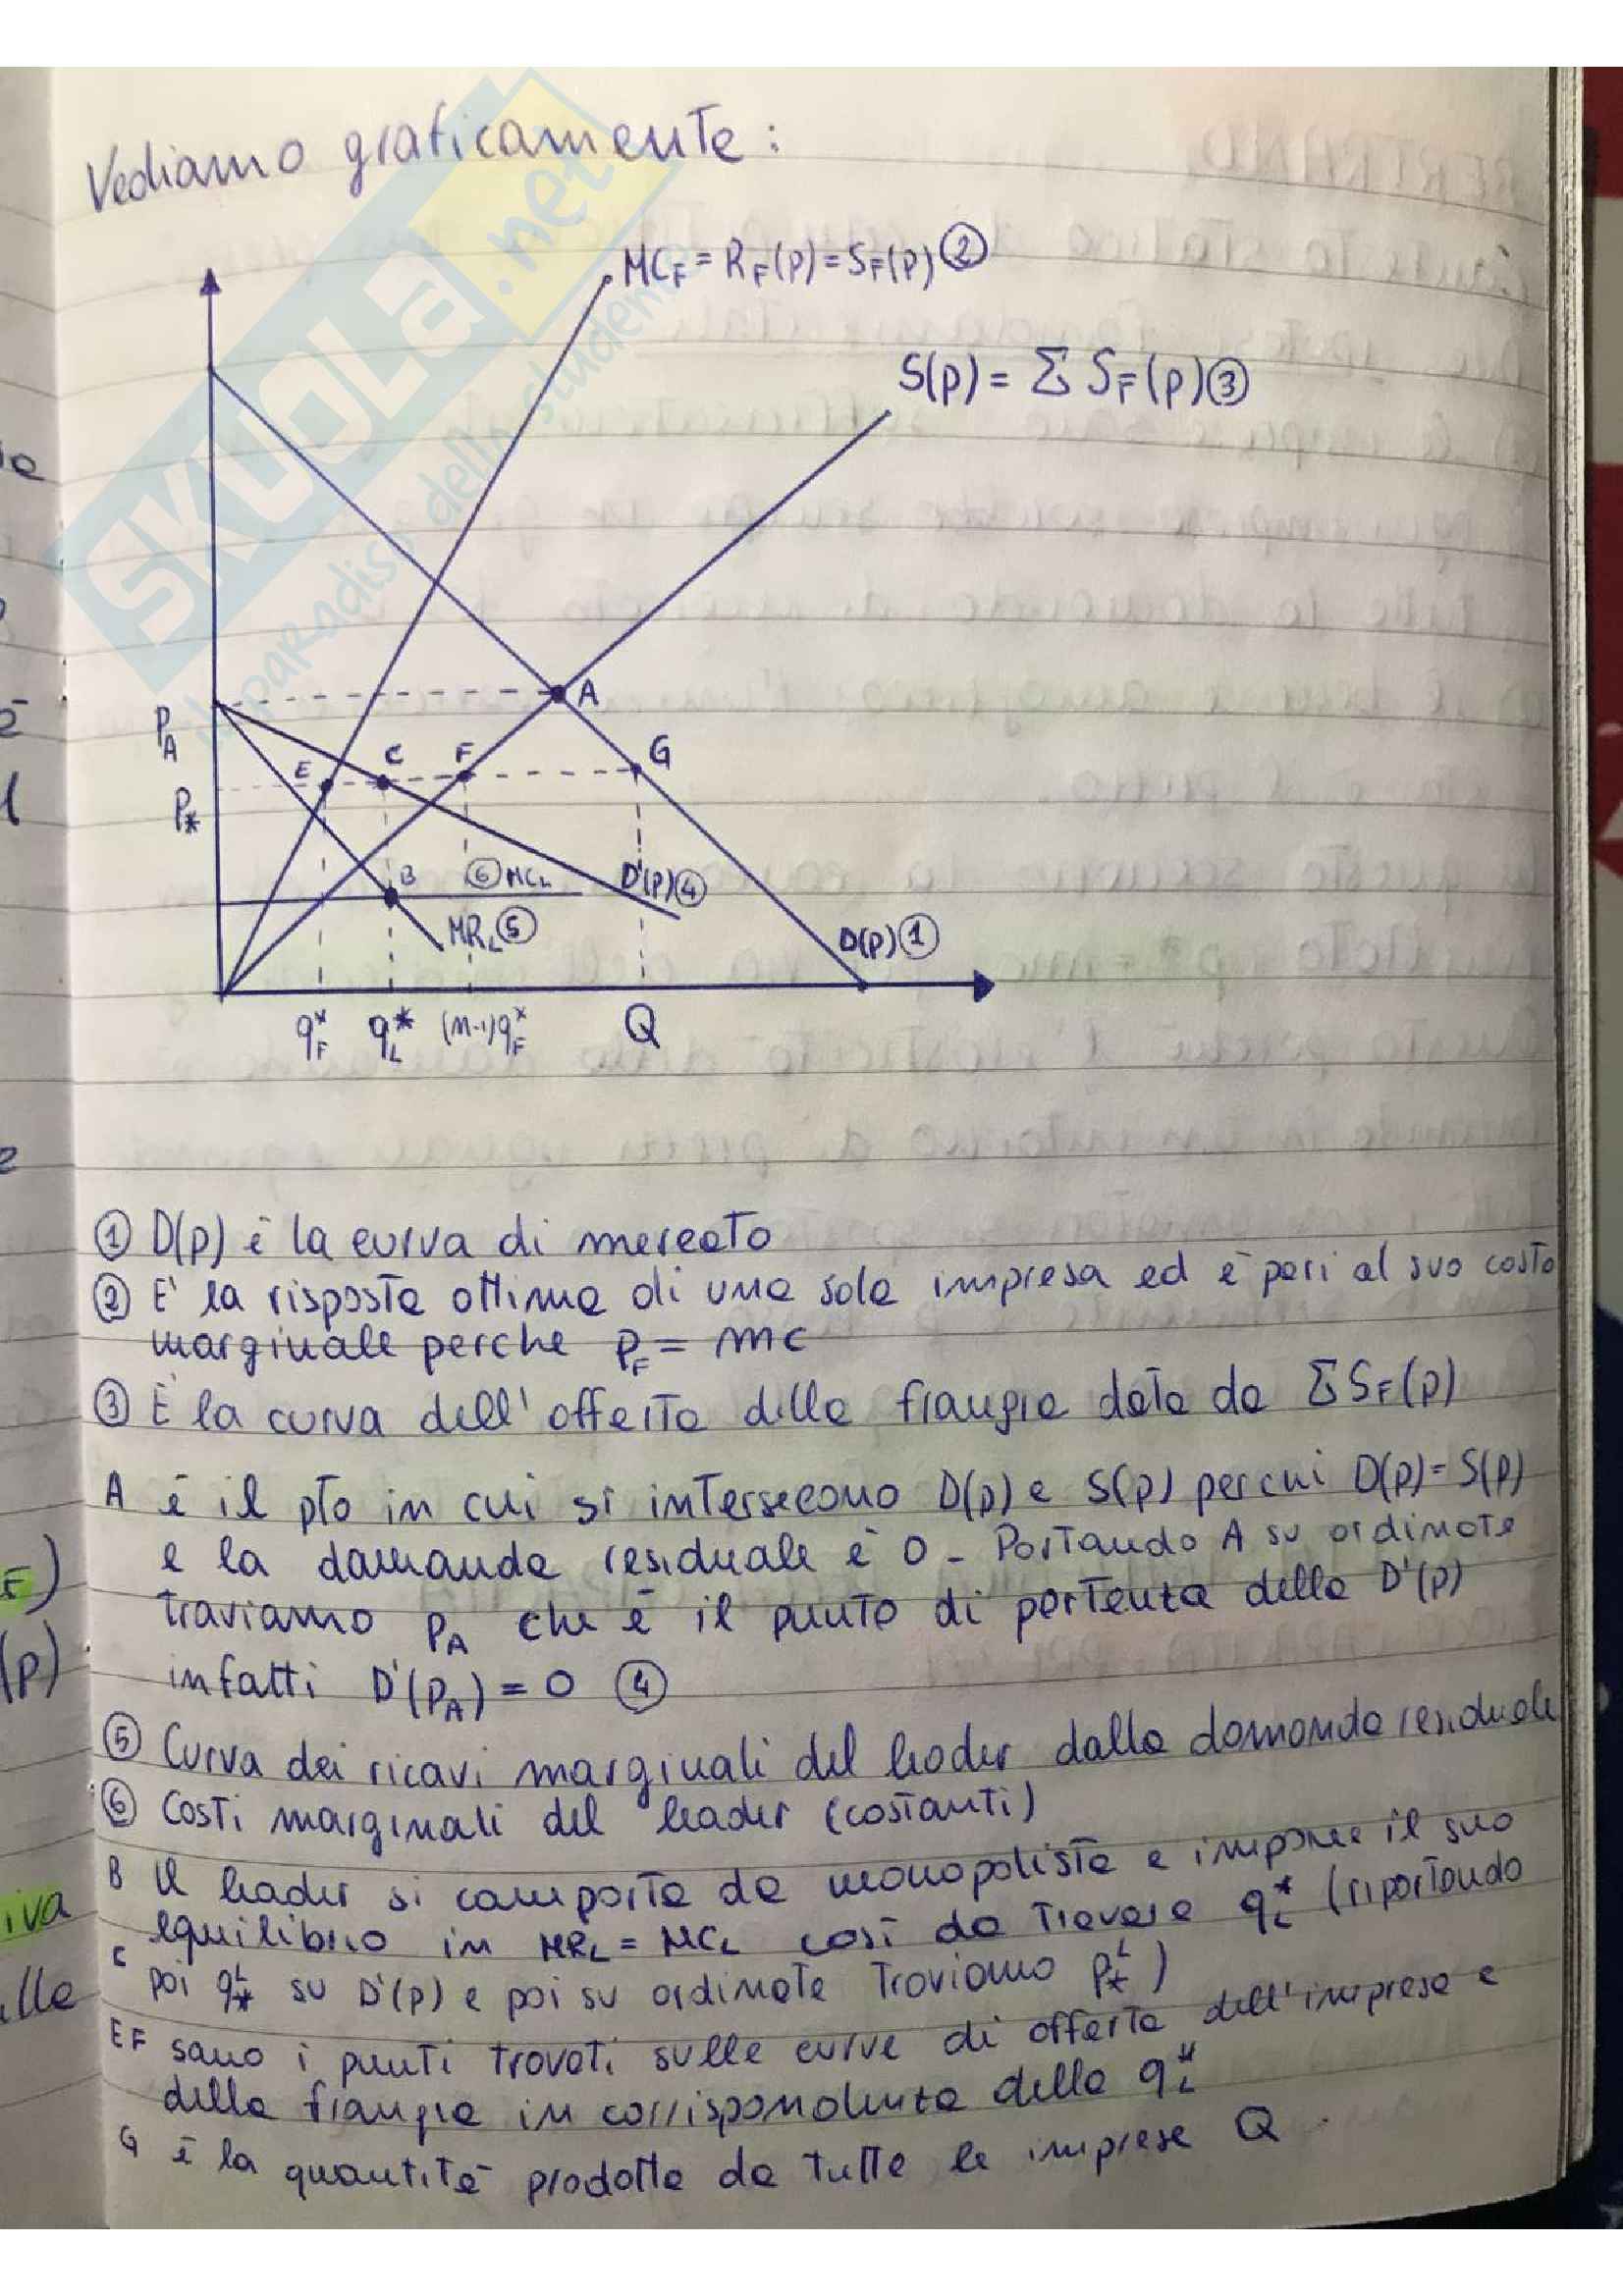 Vediamo graficamente:
SKUOLA.net
il paradiso dello studente
MC_F = R_F(p) = S_F(p) ②
S(p) = Σ S_F(p) ③
A
P_A
E C F G
P*
B ⑥ MC_L D'(p) ④
MR_L ⑤ D(p) ①
q*_F q*_L (n-1)q*_F Q
① D(p) è la curva di mercato
② E' la risposta ottima di una sola impresa ed è pari al suo costo
marginale perche P_F = mc
③ È la curva dell'offerta della frangia data da Σ S_F(p)
A è il pto in cui si intersecano D(p) e S(p) per cui D(p) = S(p)
e la domanda residuale è 0 - Portando A su ordinate
troviamo P_A che è il punto di partenza della D'(p)
infatti D'(P_A) = 0 ④
⑤ Curva dei ricavi marginali del leader dalla domanda residuale
⑥ Costi marginali del leader (costanti)
B Il leader si comporta da monopolista e impone il suo
equilibrio in MR_L = MC_L così da trovare q*_L (riportando
C poi q^L_* su D'(p) e poi su ordinate troviamo P^L_*)
EF sano i punti trovati sulle curve di offerta dell'impresa e
della frangia in corrispondenza della q*_L
G è la quantità prodotta da tutte le imprese Q